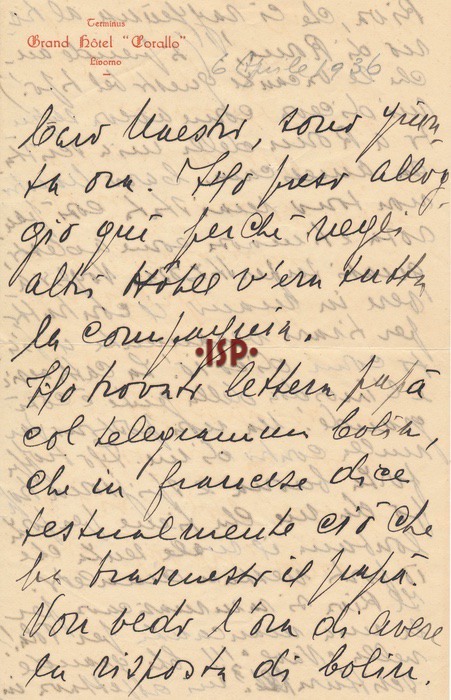 Terminus
Grand Hôtel "Corallo"
Livorno
6 Aprile 1936
Caro Maestro, sono giun
ta ora. Ho preso allog
gio qui perchè negli
altri Hôtel v'era tutta
la compagnia.
·ISP·
Ho trovato lettera papà
col telegramma Colin,
che in francese dice
testualmente ciò che
ha trasmesso il papà.
Non vedo l'ora di avere
la risposta di Colin.